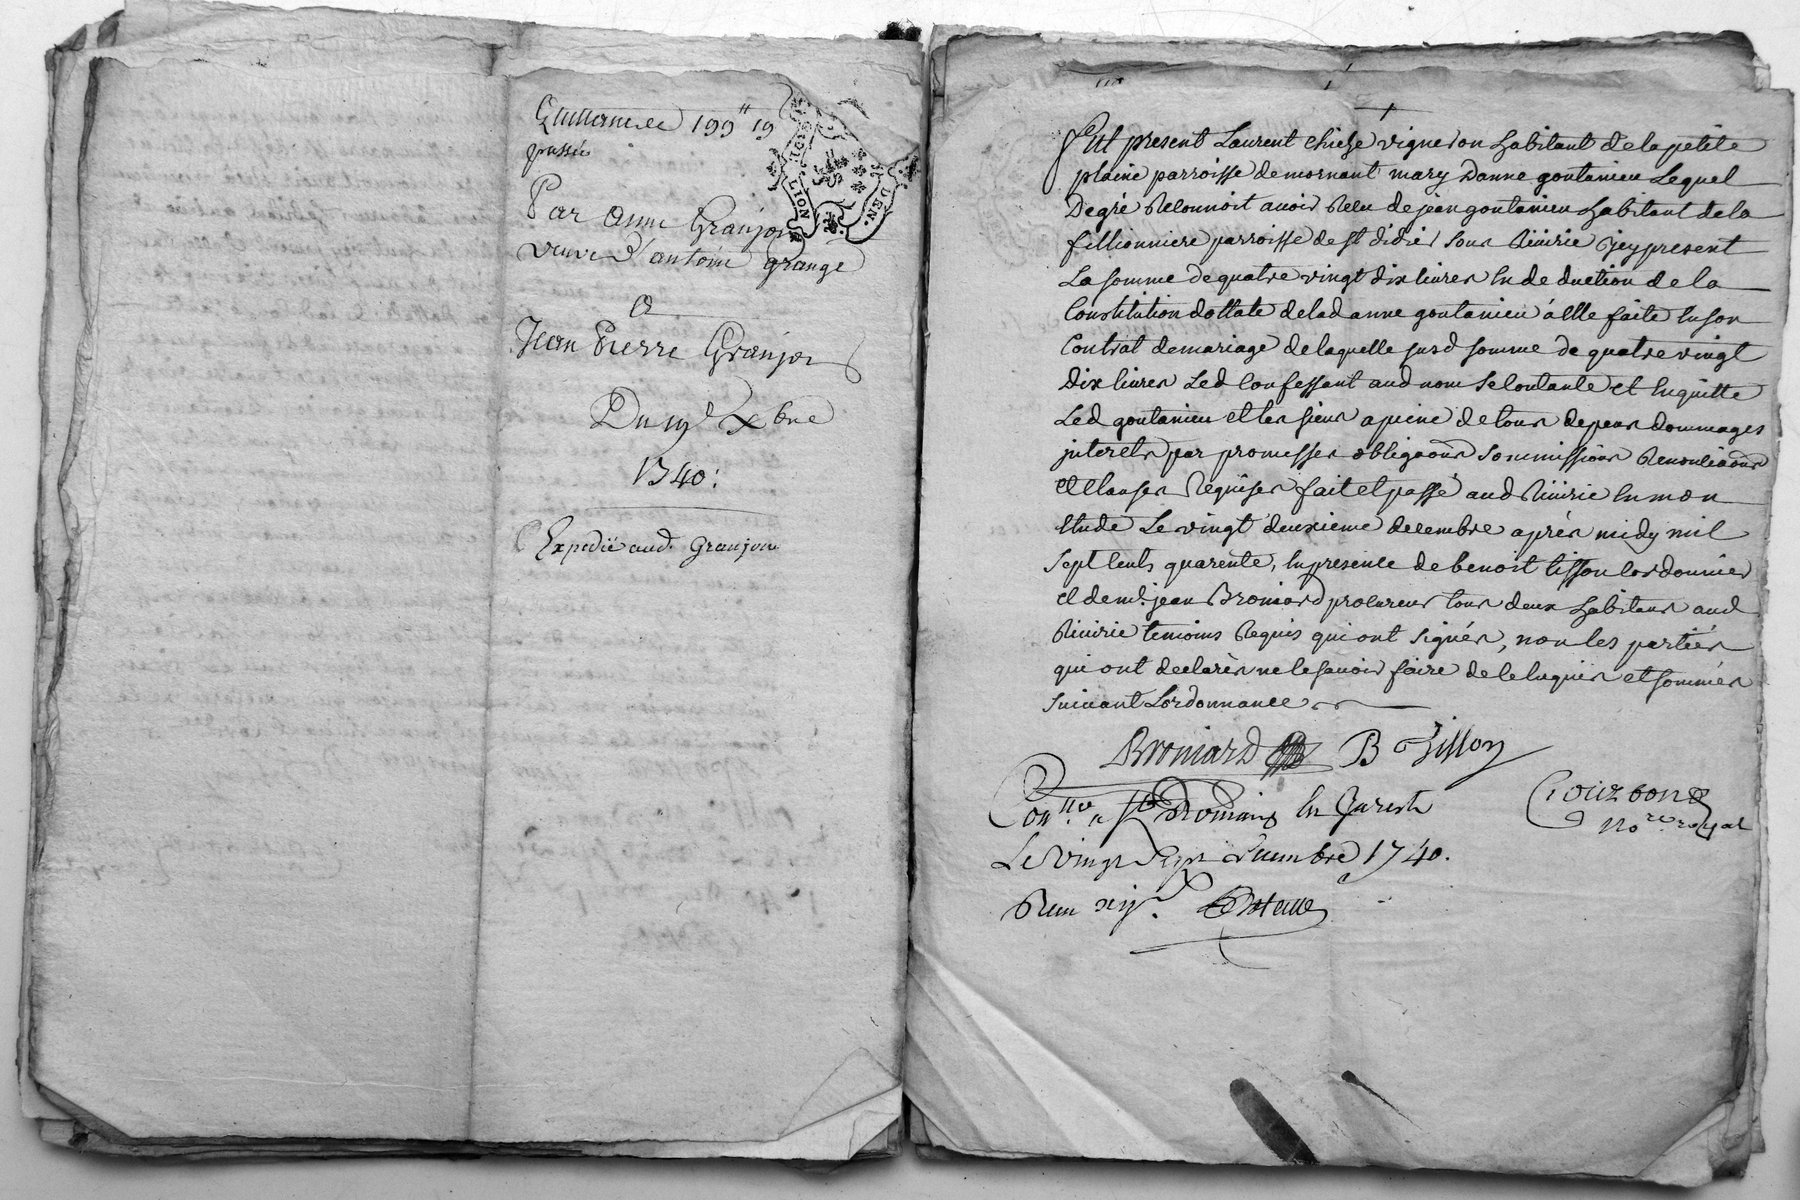 Quittance de 199# 19
passée
Par anne Granjon
veuve d'antoine grange
a
Jean Pierre Granjon
Du xbre
1740:
Expedié aud. Granjon
GEN. DE LION
Fut present Laurent chieze vigneron habitant de la petite
plaine parroisse de mornant mary Danne goutanieu Lequel
Degré Reconnoit avoir Receu de jean goutanieu habitant de la
fillionniere parroisse de st didier sous Riverie icy present
La somme de quatre vingt dix livres en deduction de la
Constitution dottale de lad anne goutanieu á elle faite en son
Contrat de mariage de laquelle susd somme de quatre vingt
Dix livres Led confessant aud nom se contante et en quitte
Led goutanieu et les siens a peine de tous depens dommages
interets par promesses obligaons soumissions Renonciaons
et clauses Requises fait et passé aud Riverie en mon
etude Le vingt deuxieme decembre aprés midy mil
sept cents quarente, en presence de benoit tisson cordonnier
et de me. jean Broniard procureur tous deux habitans aud
Riverie temoins Requis qui ont signés, non les partiés
qui ont declarés ne le savoir faire de ce enquis et sommés
suivant Lordonnance
Broniard B Tisson
Conlle a st Romain en Jarest
Crouzon
nore royal
Le vingt sept decembre 1740.
Receu